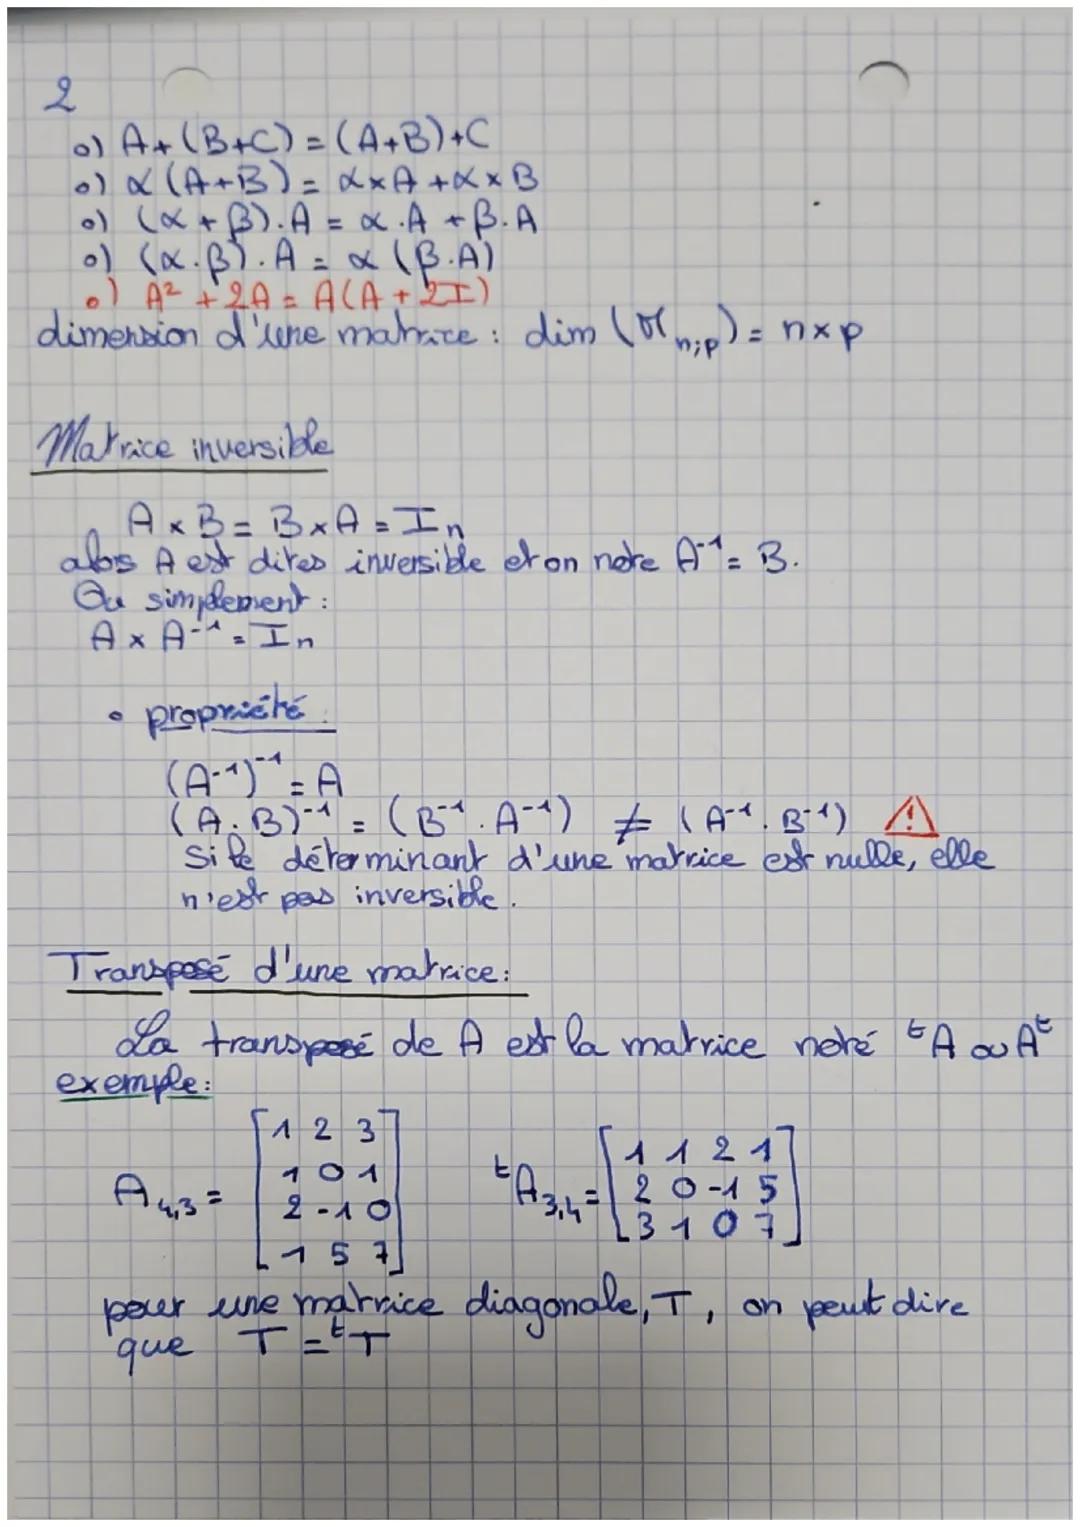 2
o) A+(B+C)=(A+B)+C
o) α(A+B)= α×A+α×B
o) (α+β).A = α.A+β.A
o) (α.β).A = α(β.A)
o) A² + 2A = A(A+2I)
dimension d'une matrice : dim (M n;p) = n×p
Matrice inversible
A × B = B×A = In
alors A est dites inversible et on note A⁻¹ = B.
Ou simplement :
A × A⁻¹ = In
• propriété :
(A⁻¹)⁻¹ = A
(A.B)⁻¹ = (B⁻¹.A⁻¹) ≠ (A⁻¹.B⁻¹) ⚠
Si le déterminant d'une matrice est nulle, elle
n'est pas inversible.
Transposé d'une matrice:
La transposé de A est la matrice noté ᵗA ou Aᵗ
exemple:
A4,3 = [1 2 3
1 0 1
2 -1 0
1 5 7]
ᵗA3,4 = [1 1 2 1
2 0 -1 5
3 1 0 7]
pour une matrice diagonale, T, on peut dire
que T = ᵗT